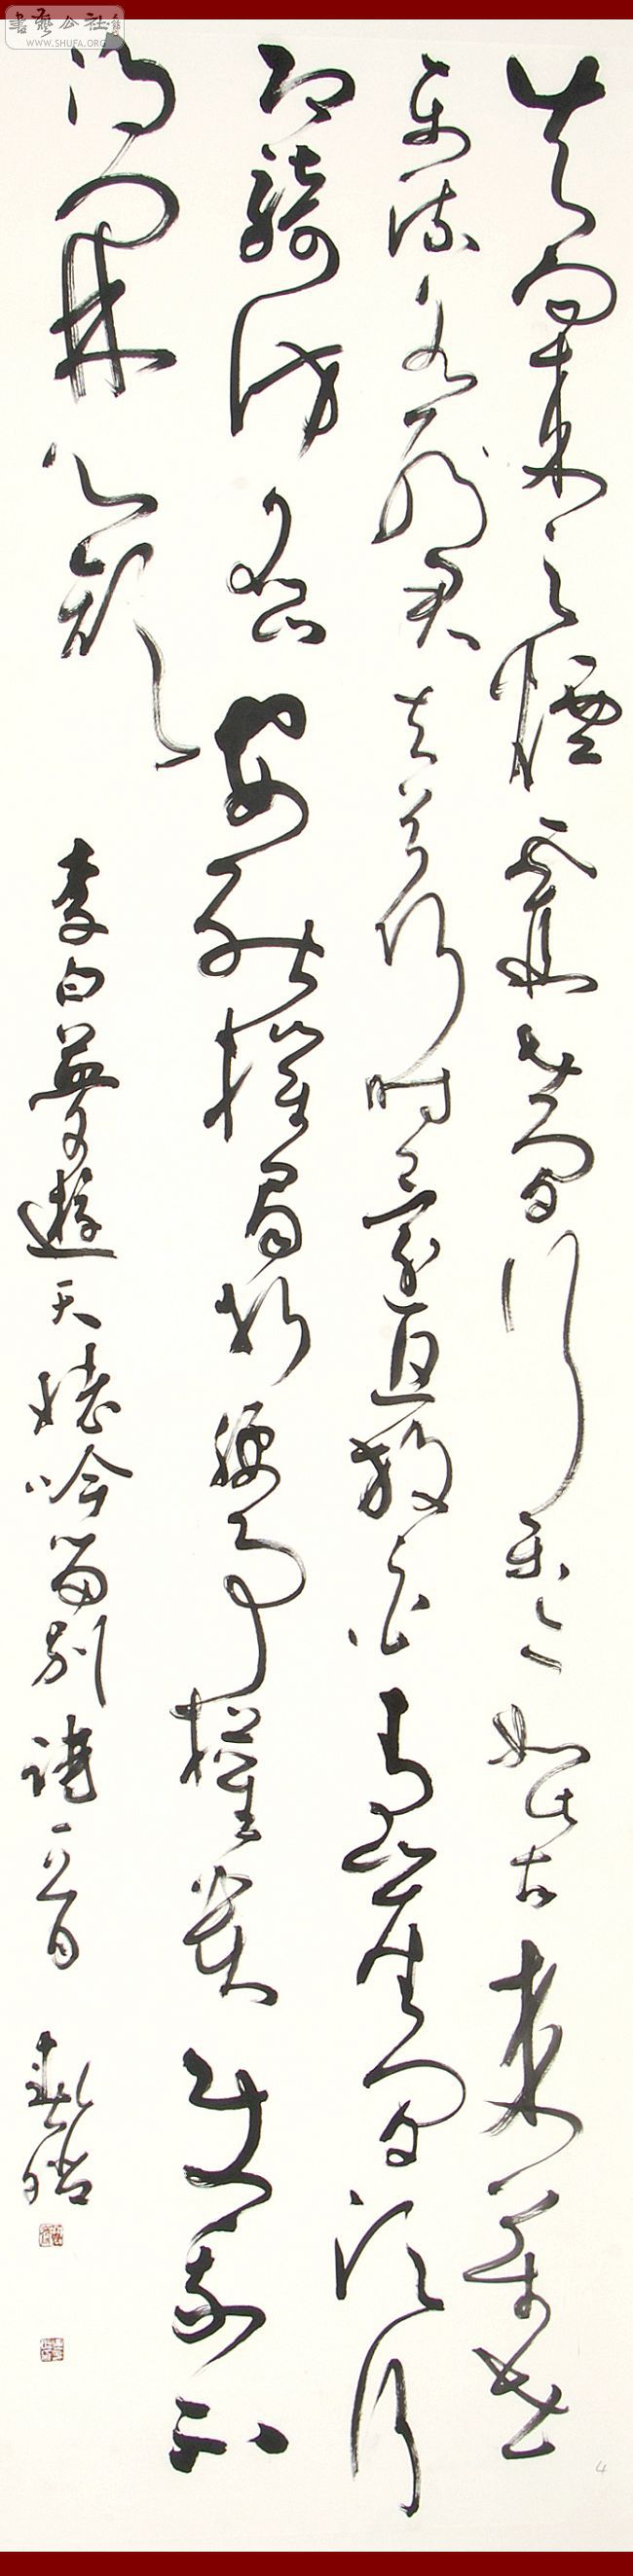 書藝公社
WWW.SHUFA.ORG
失向来之煙霞世間行樂亦如此古来万事
東流水别君去兮何時還且放白鹿青崖間須行
即騎訪名山安能摧眉折腰事權貴使我不
得開心顔
李白夢遊天姥吟留别詩一首